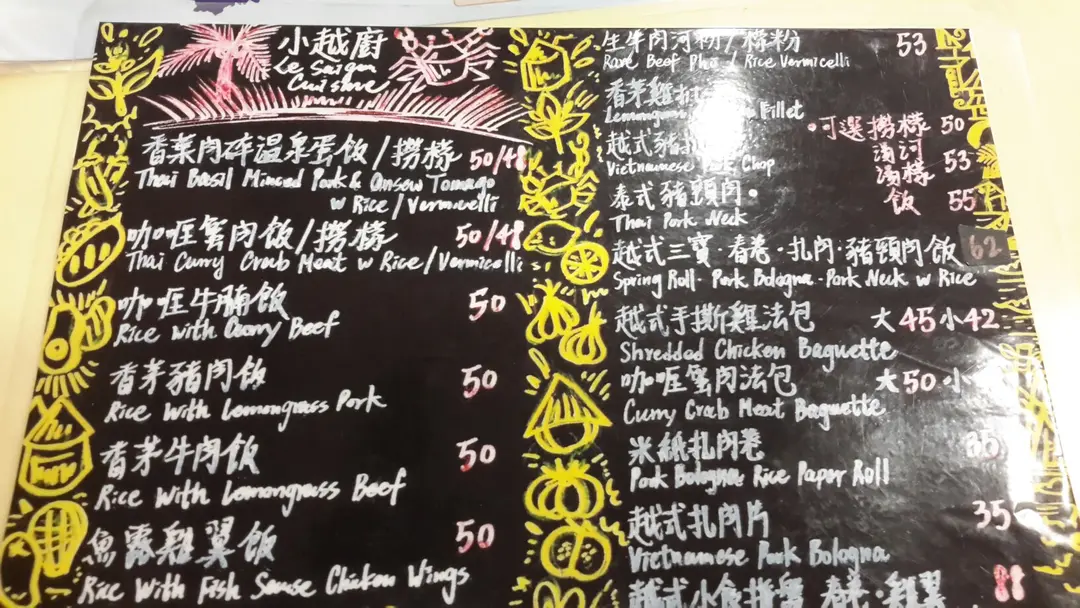 小越廚
Le Saigon
Cuisine
香葉肉碎温泉蛋飯/撈檬 50/48
Thai Basil Minced Pork & Onsew Tomago
w Rice/Vermicelli
咖喱蟹肉飯/撈檬 50/48
Thai Curry Crab Meat w Rice/Vermicelli
咖喱牛腩飯 50
Rice with Curry Beef
香茅豬肉飯 50
Rice with Lemongrass Pork
香茅牛肉飯 50
Rice with Lemongrass Beef
魚露雞翼飯 50
Rice With Fish Sause Chicken Wings
生牛肉河粉/檬粉 53
Rare Beef Pho / Rice Vermicelli
香茅雞扒
Lemongrass Fillet
越式豬
Vietnamese Chop
泰式豬頸肉
Thai Pork Neck
•可選 撈檬 50
湯河
湯檬 53
飯 55
越式三寶·春卷·扎肉·豬頸肉飯 62
Spring Roll · Pork Bologna · Pork Neck w Rice
越式手撕雞法包 大45小42
Shredded Chicken Baguette
咖喱蟹肉法包 大50小
Curry Crab Meat Baguette
米紙扎肉卷 35
Pork Bologna Rice Paper Roll
越式扎肉片 35
Vietnamese Pork Bologna
越式小食拼盤 春卷·雞翼 88